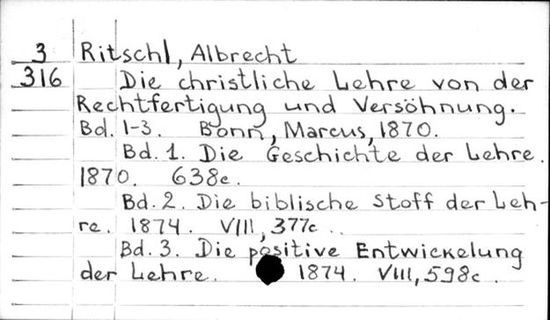 3 Ritschl, Albrecht
316 Die christliche Lehre von der
Rechtfertigung und Versöhnung.
Bd. 1-3. Bonn, Marcus, 1870.
Bd. 1. Die Geschichte der Lehre.
1870. 638c.
Bd. 2. Die biblische Stoff der Leh-
re. 1874. VIII, 377c.
Bd. 3. Die positive Entwickelung
der Lehre. 1874. VIII, 598c.